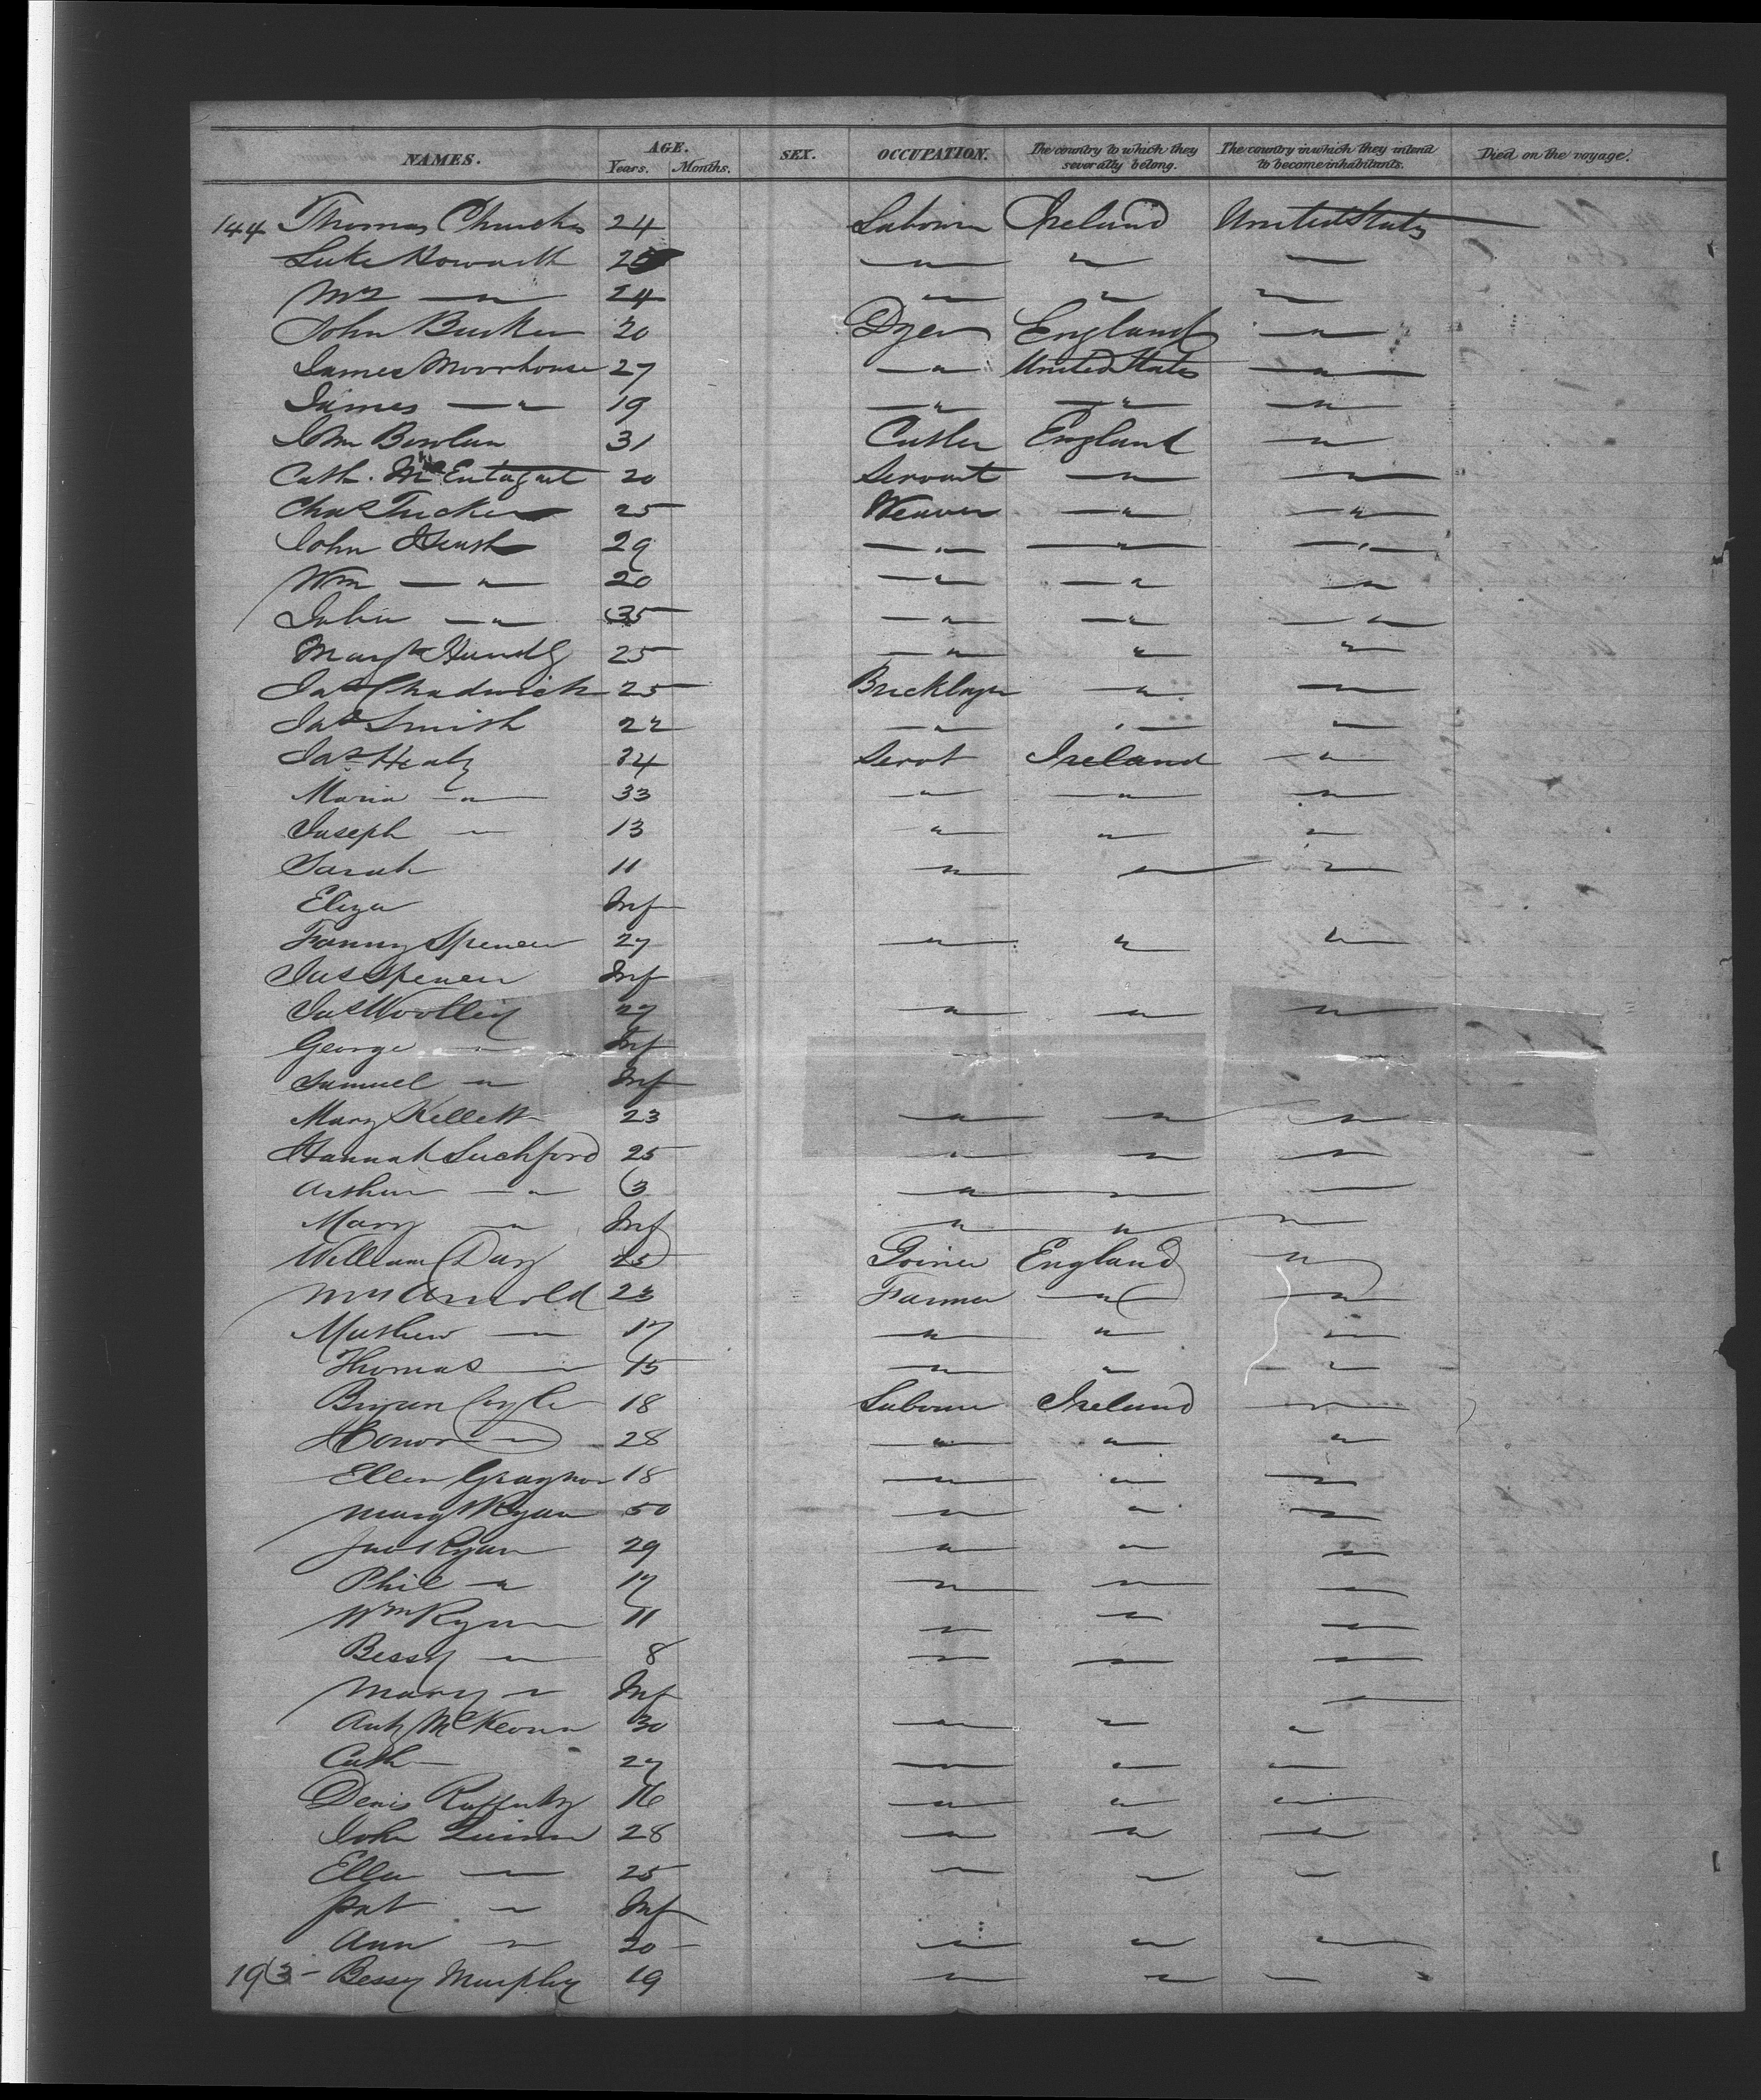 NAMES. AGE. Years. Months. SEX. OCCUPATION. The country to which they severally belong. The country in which they intend to become inhabitants. Died on the voyage.
144 Thomas 24 Labourer Ireland United States
Luke Howarth " " "
Mrs " 24 " " "
John 20 Dyer England "
James Moorhouse 27 " United States "
James " 19 " " "
31 Cutler England "
Cath. McEntagart 20 Servant " "
Chas Tucker 25 Weaver " "
John 29 " " "
Wm " 20 " " "
" 35 " " "
Margt 25 " " "
Jas Chadwick 25 Bricklayer " "
Jas Smith 22 " " "
Jas Healy 34 Servt Ireland "
Maria " 33 " " "
Joseph " 13 " " "
Sarah 11 " " "
Eliza Inf
Fanny Spencer 27 " " "
Jas Spencer Inf
Jas Woolley 27 " " "
George " Inf
Samuel " Inf
Mary Kellett 23 " " "
Hannah Luchford 25 " " "
Arthur " 3 " " "
Mary " Inf " " "
William Day 25 Joiner England "
Arnold 23 Farmer " "
Mathew " 17 " " "
Thomas " 15 " " "
Bryan Coyle 18 Labourer Ireland "
Honor " 28 " " "
Ellen 18 " " "
Mary Ryan 50 " " "
Ryan 29 " " "
Phil " 17 " " "
Wm Ryan 11 " " "
Bessy " 8 " " "
Mary " Inf "
Anty McKeown 30 " " "
Cath 27 " " "
Denis Rafferty 16 " " "
John Quinn 28 " " "
Ellen " 25 " " "
Pat " Inf
Ann " 20 " " "
193 - Bessy Murphy 19 " " "